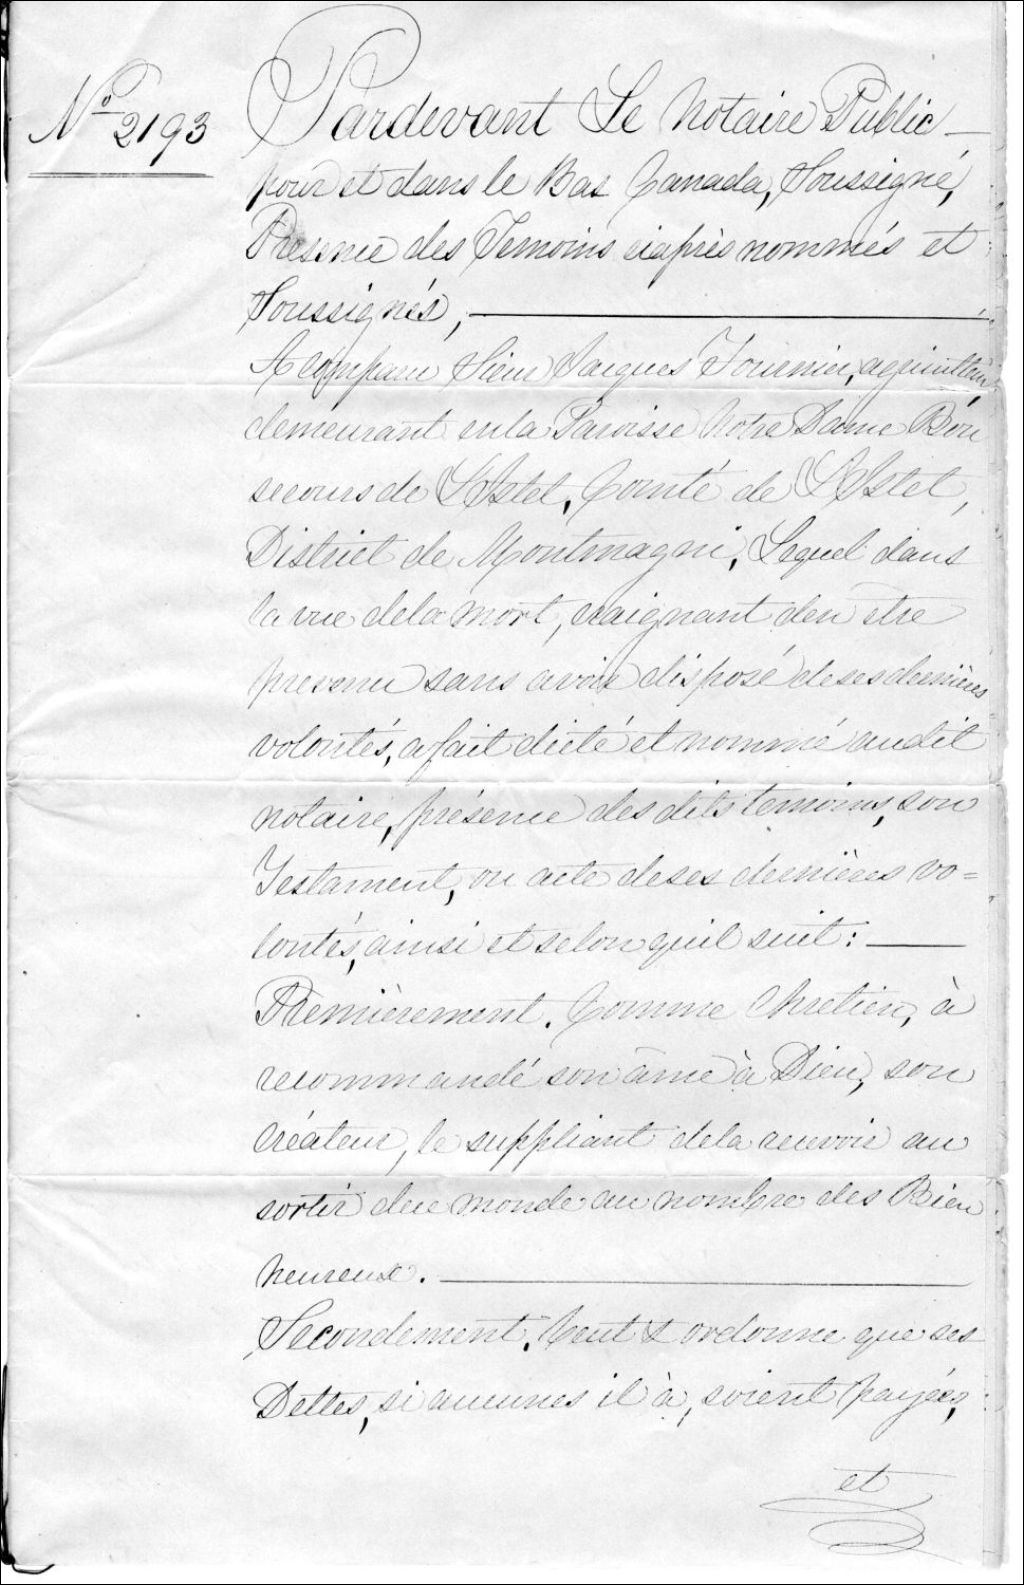 No 2193
Pardevant Le Notaire Public
pour et dans le Bas Canada, Soussigné,
Présence des Temoins ciaprès nommés et
Soussignés,
A Comparu Sieur Jacques Fournier, agriculteur
demeurant enla Paroisse Notre Dame Bon
secours de L'Islet, Comté de L'Islet,
District de Montmagni, Lequel dans
la vue dela mort, craignant d'en être
prevenu sans avoir disposé de ses dernières
volontés, a fait dicté et nommé audit
notaire, présence des dits temoins, son
Testament, ou acte de ses dernières vo=
lontés, ainsi et selon quil suit:
Premièrement. Comme Chretien, à
recommandé son âme à Dieu, son
Créateur, le suppliant dela recevoir au
sortir de ce monde au nombre des Bien
heureux.
Secondement. Veut & ordonne que ses
Dettes, si aucunes il à, soient payées,
et